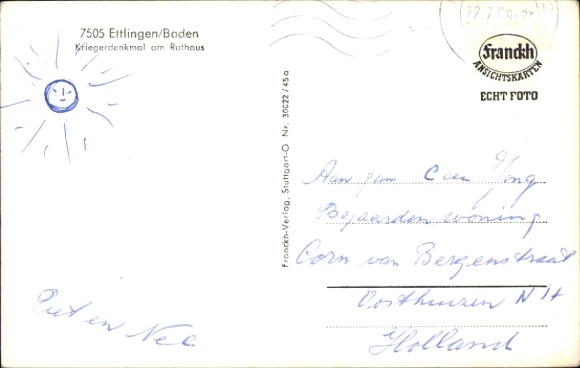 7505 Ettlingen/Baden
Kriegerdenkmal am Rathaus
Franckh
ANSICHTSKARTEN
ECHT FOTO
Franckh-Verlag, Stuttgart-O Nr. 30C22/45a
Aan
Bejaarden woning
Corn van Bergenstraat
Oosthuizen N H
Holland
Piet en Nel